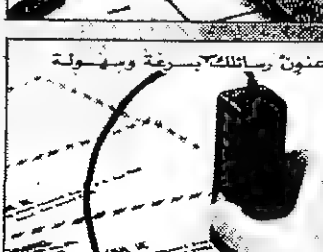 عنون رسائلك بسرعة وسهولة